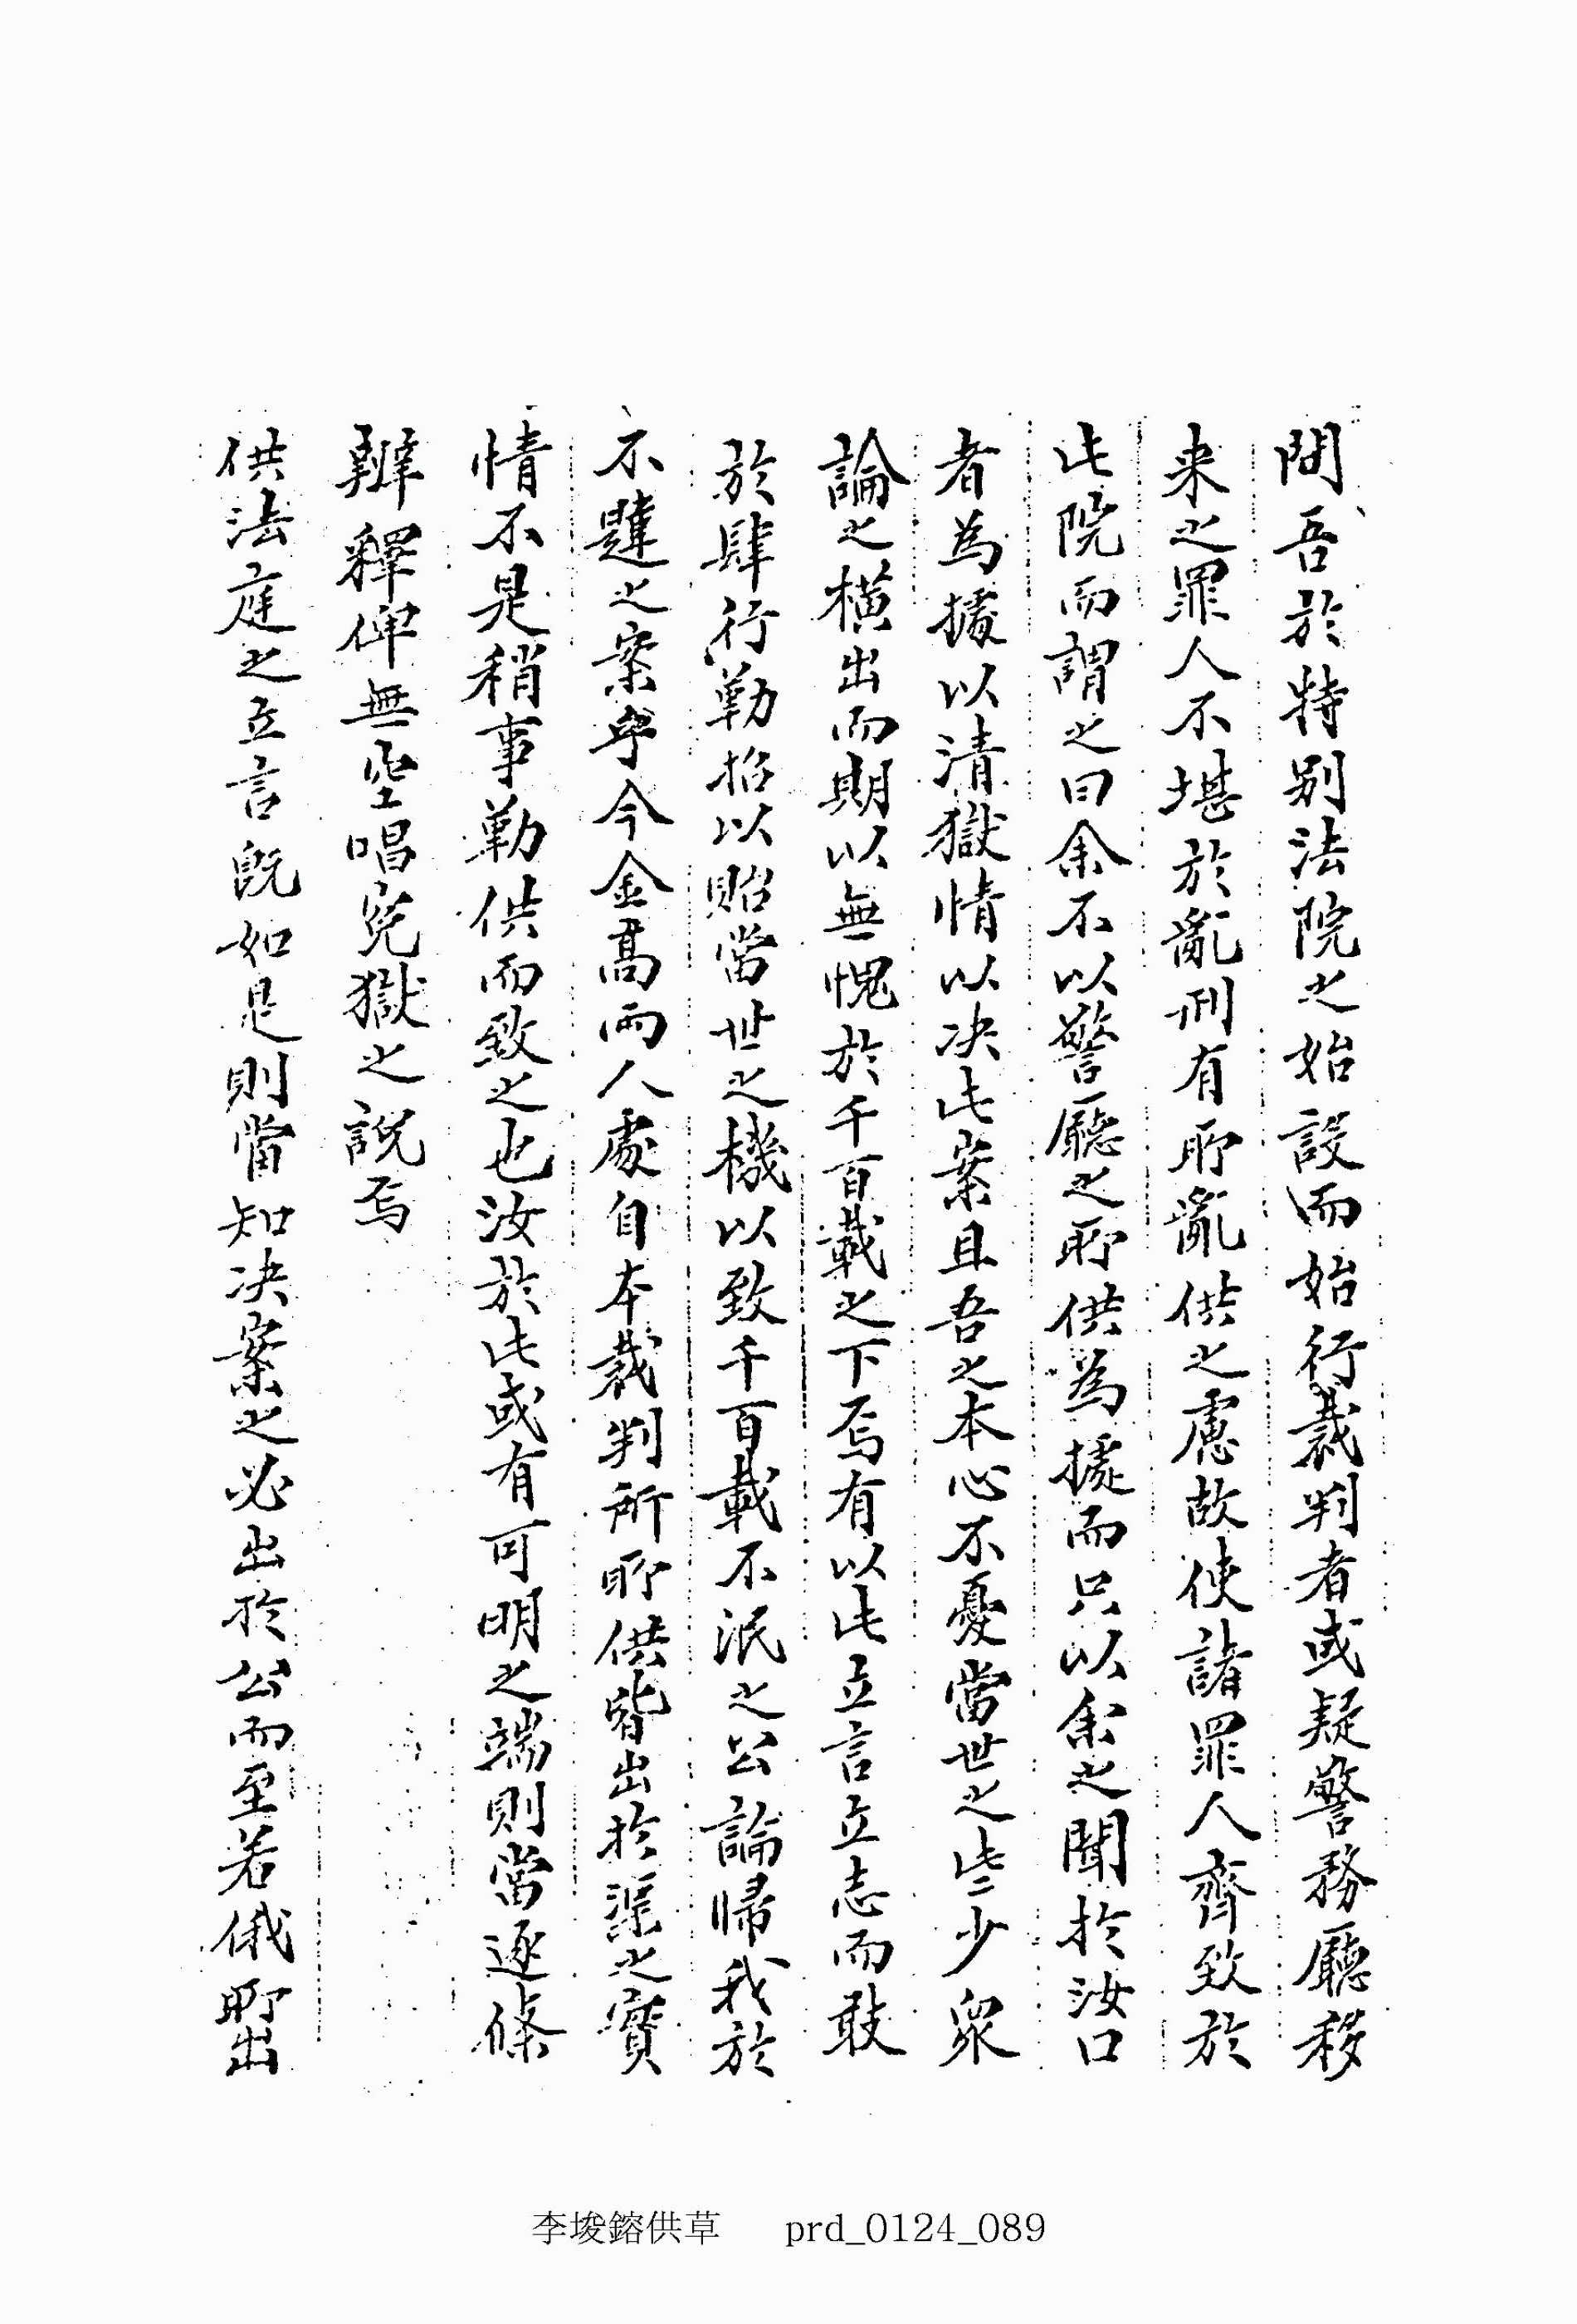 問吾於特別法院之始設而始行裁判者或疑警務廳移
来之罪人不堪於亂刑有所亂供之慮故使諸罪人齊致於
此院而謂之曰余不以警廳之所供為據而只以余之聞於汝口
者為據以清獄情以决此案且吾之本心不憂當世之些少衆
論之橫出而期以無愧於千百載之下焉有以此立言立志而敢
於肆行勒招以貽當世之機以致千百載不泯之公論歸我於
不韙之案乎今金髙兩人處自本裁判所所供皆出於渠之實
情不是稍事勒供而致之也汝於此或有可明之端則當逐條
辨釋俾無空唱寃獄之說焉
供法庭之立言旣如是則當知决案之必出於公而至若俄所出
李埈鎔供草 prd_0124_089